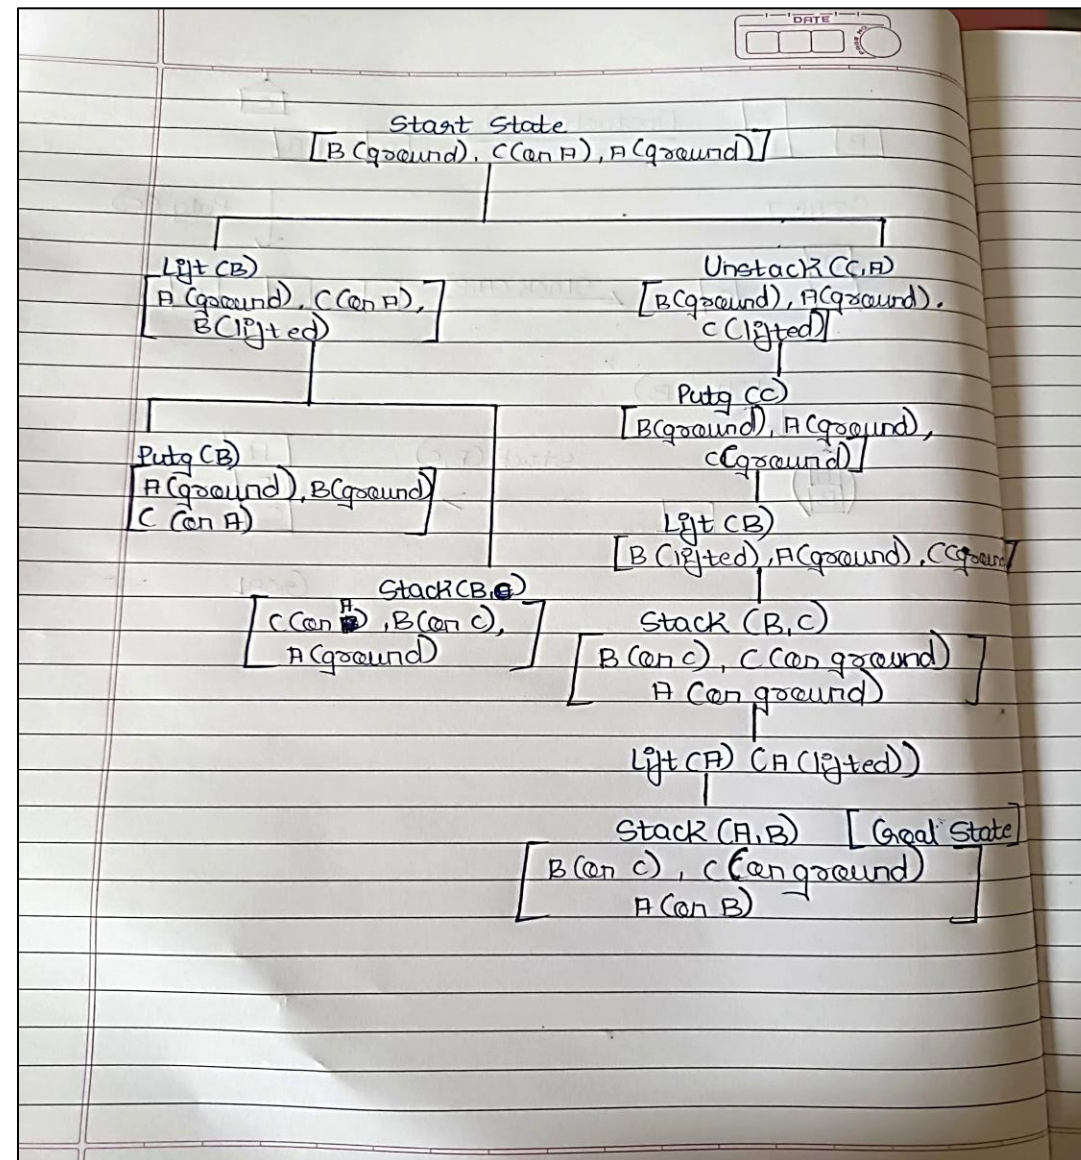 DATE
Start State
[B(ground), C(on A), A(ground)]
Lift (B)
[A (ground), C(on A),
B(lifted)]
Putg (B)
[A(ground), B(ground)
C (on A)]
Stack(B,C)
[C(on A), B(on C),
A(ground)]
Unstack (C,A)
[B(ground), A(ground).
C(lifted)]
Putg (C)
[B(ground), A(ground),
C(ground)]
Lift (B)
[B (lifted), A(ground), C(ground]
Stack (B,C)
[B (on C), C (on ground)
A (on ground)]
Lift (A) (A (lifted))
Stack (A,B) [Goal State]
[B (on C), C (on ground)
A (on B)]